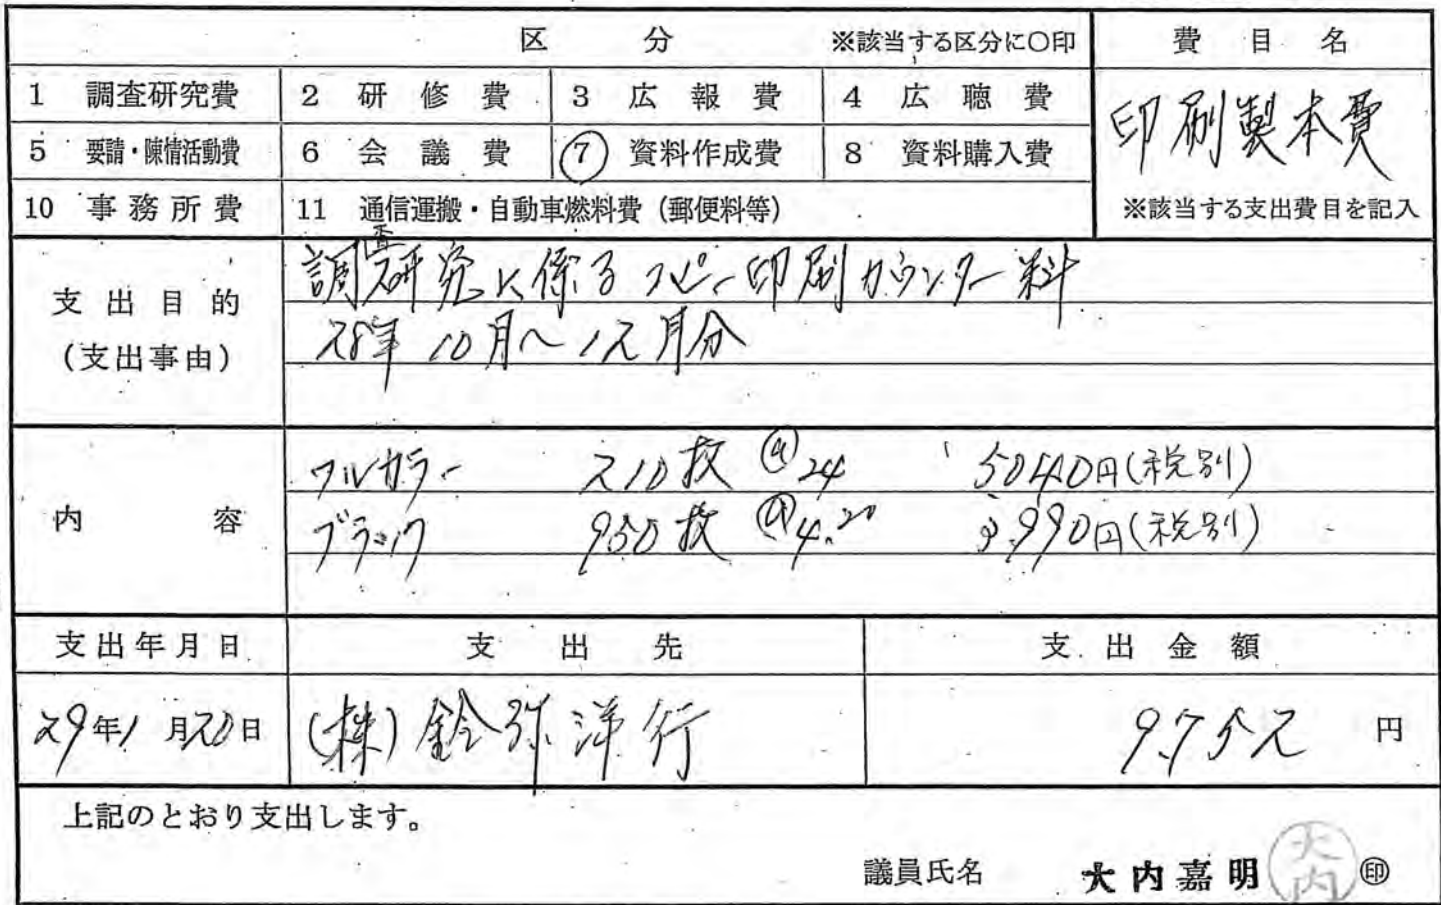 区 分 ※該当する区分に○印 費 目 名
1 調査研究費 2 研 修 費 3 広 報 費 4 広 聴 費
印刷製本費
5 要請・陳情活動費 6 会 議 費 ⑦ 資料作成費 8 資料購入費
10 事 務 所 費 11 通信運搬・自動車燃料費(郵便料等) ※該当する支出費目を記入
支 出 目 的
(支出事由)
調査研究に係るコピー印刷カウンター料
28年10月~12月分
内 容
フルカラー 210枚 @24 5040円(税別)
ブラック 950枚 @4.20 3,990円(税別)
支出年月日 支 出 先 支 出 金 額
29年1月20日 (株)鈴弥洋行 9,752 円
上記のとおり支出します。
議員氏名 大内嘉明 大内 ㊞